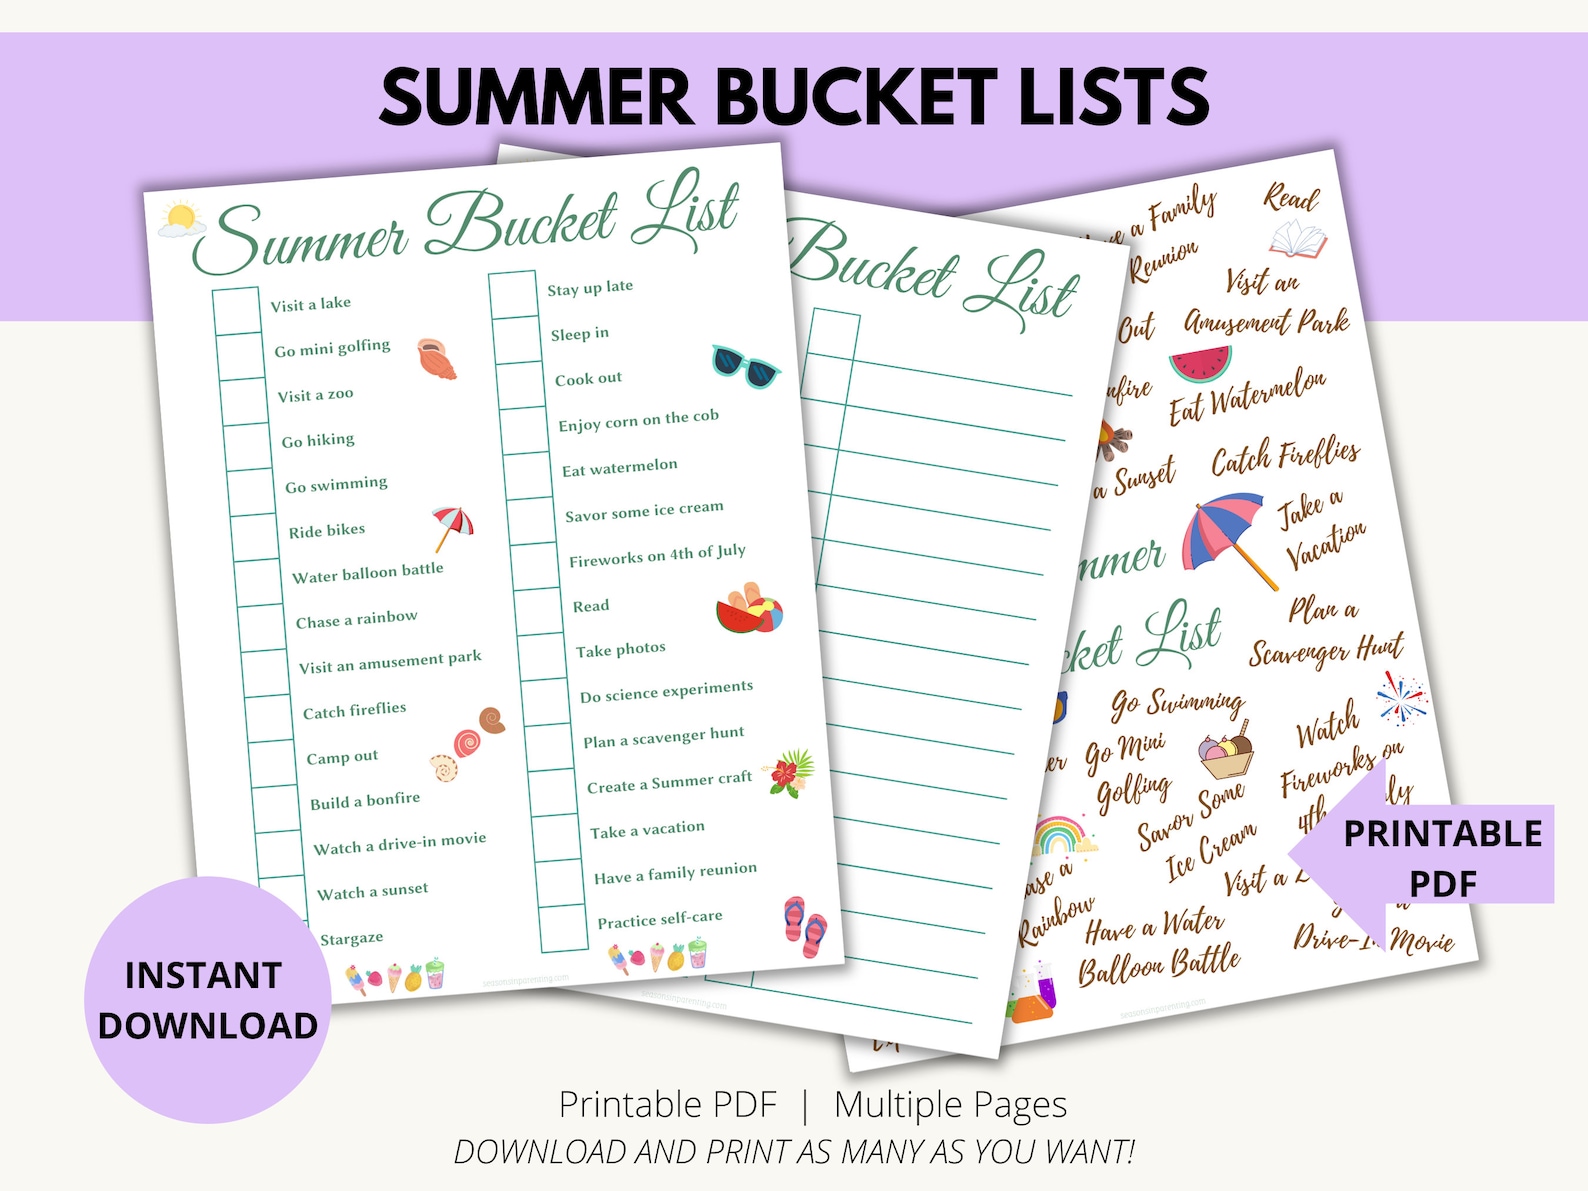 SUMMER BUCKET LISTS
Summer Bucket List
Visit a lake
Go mini golfing
Visit a zoo
Go hiking
Go swimming
Ride bikes
Water balloon battle
Chase a rainbow
Visit an amusement park
Catch fireflies
Camp out
Build a bonfire
Watch a drive-in movie
Watch a sunset
Stargaze
Stay up late
Sleep in
Cook out
Enjoy corn on the cob
Eat watermelon
Savor some ice cream
Fireworks on 4th of July
Read
Take photos
Do science experiments
Plan a scavenger hunt
Create a Summer craft
Take a vacation
Have a family reunion
Practice self-care
seasonsinparenting.com
Bucket List
seasonsinparenting.com
a Family
Reunion
Read
Visit an
Amusement Park
Out
Eat Watermelon
a Sunset
Catch Fireflies
Take a
Vacation
List
Plan a
Scavenger Hunt
Go Swimming
Go Mini
Golfing
Savor Some
Ice Cream
Watch
Fireworks on
4th
Visit a
Rainbow
Have a Water
Balloon Battle
Movie
seasonsinparenting.com
PRINTABLE
PDF
INSTANT
DOWNLOAD
Printable PDF | Multiple Pages
DOWNLOAD AND PRINT AS MANY AS YOU WANT!